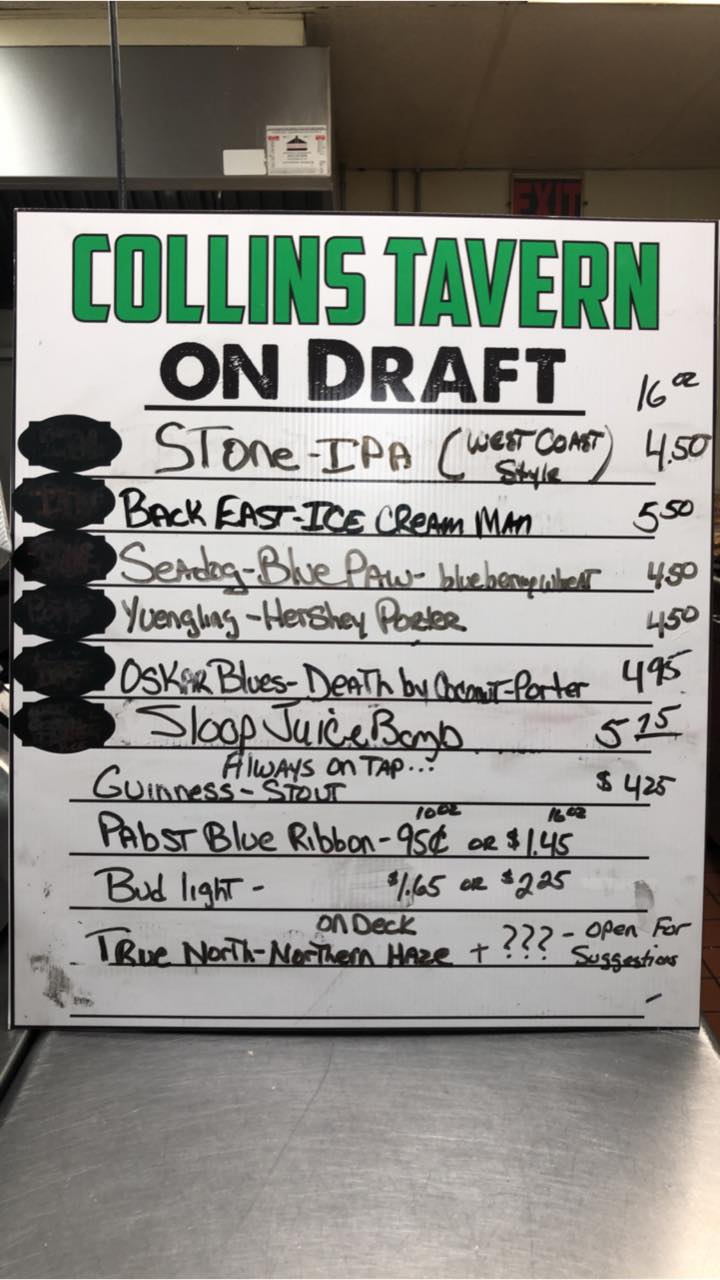 EXIT
COLLINS TAVERN
ON DRAFT
16 oz
STone-IPA (WEST COAST Style) 4.50
BACK EAST-ICE CReam Man 5 50
Seadog-Blue Paw- blueberry wheat 4.50
Yuengling-Hershey Porter 4.50
OSKAR Blues-Death by Coconut-Porter 4 95
Sloop Juice Bomb 5 75
Always on Tap...
Guinness-Stout $ 4 25
10 oz 16 oz
Pabst Blue Ribbon-95¢ or $1.45
Bud light - $1.65 or $2.25
on Deck
True North-Northern Haze + ??? - open For Suggestions